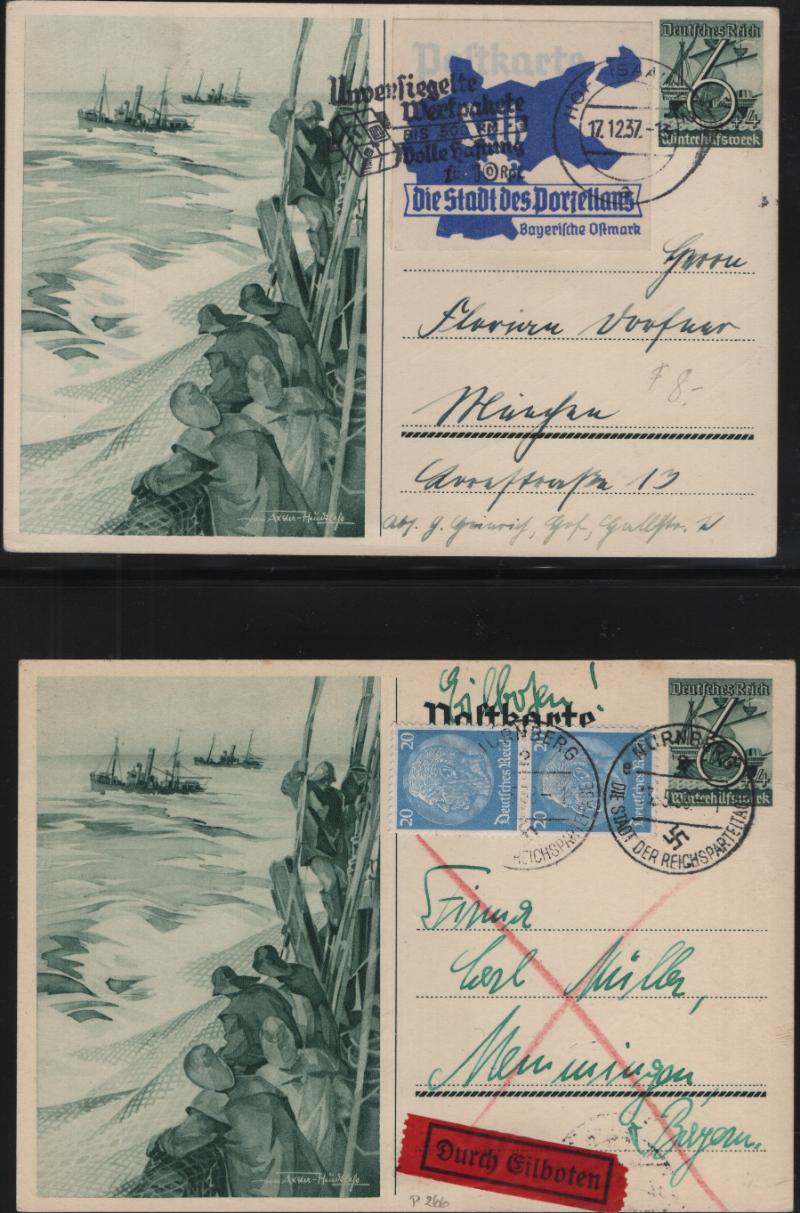 Postkarte
Deutsches Reich
6+4
Winterhilfswerk
Unversiegelte
Wertpakete
BIS 500 RM
Volle Haftung
für 10 Rpf.
HOF (SAA
17.12.37.
Die Stadt des Porzellans
Bayerische Ostmark
Herrn
Florian Dorfner
$ 8.-
München
13
Axster-Heudtlaß
Eilboten!
Postkarte
Deutsches Reich
6+4
Winterhilfswerk
20 Deutsches Reich
20 Deutsches Reich
NÜRNBERG 2
REICHSPARTEITAGE
NÜRNBERG 2
DIE STADT DER REICHSPARTEITAGE
Firma
Carl Müller,
Memmingen,
Bayern.
Durch Eilboten
Axster-Heudtlaß
P 266